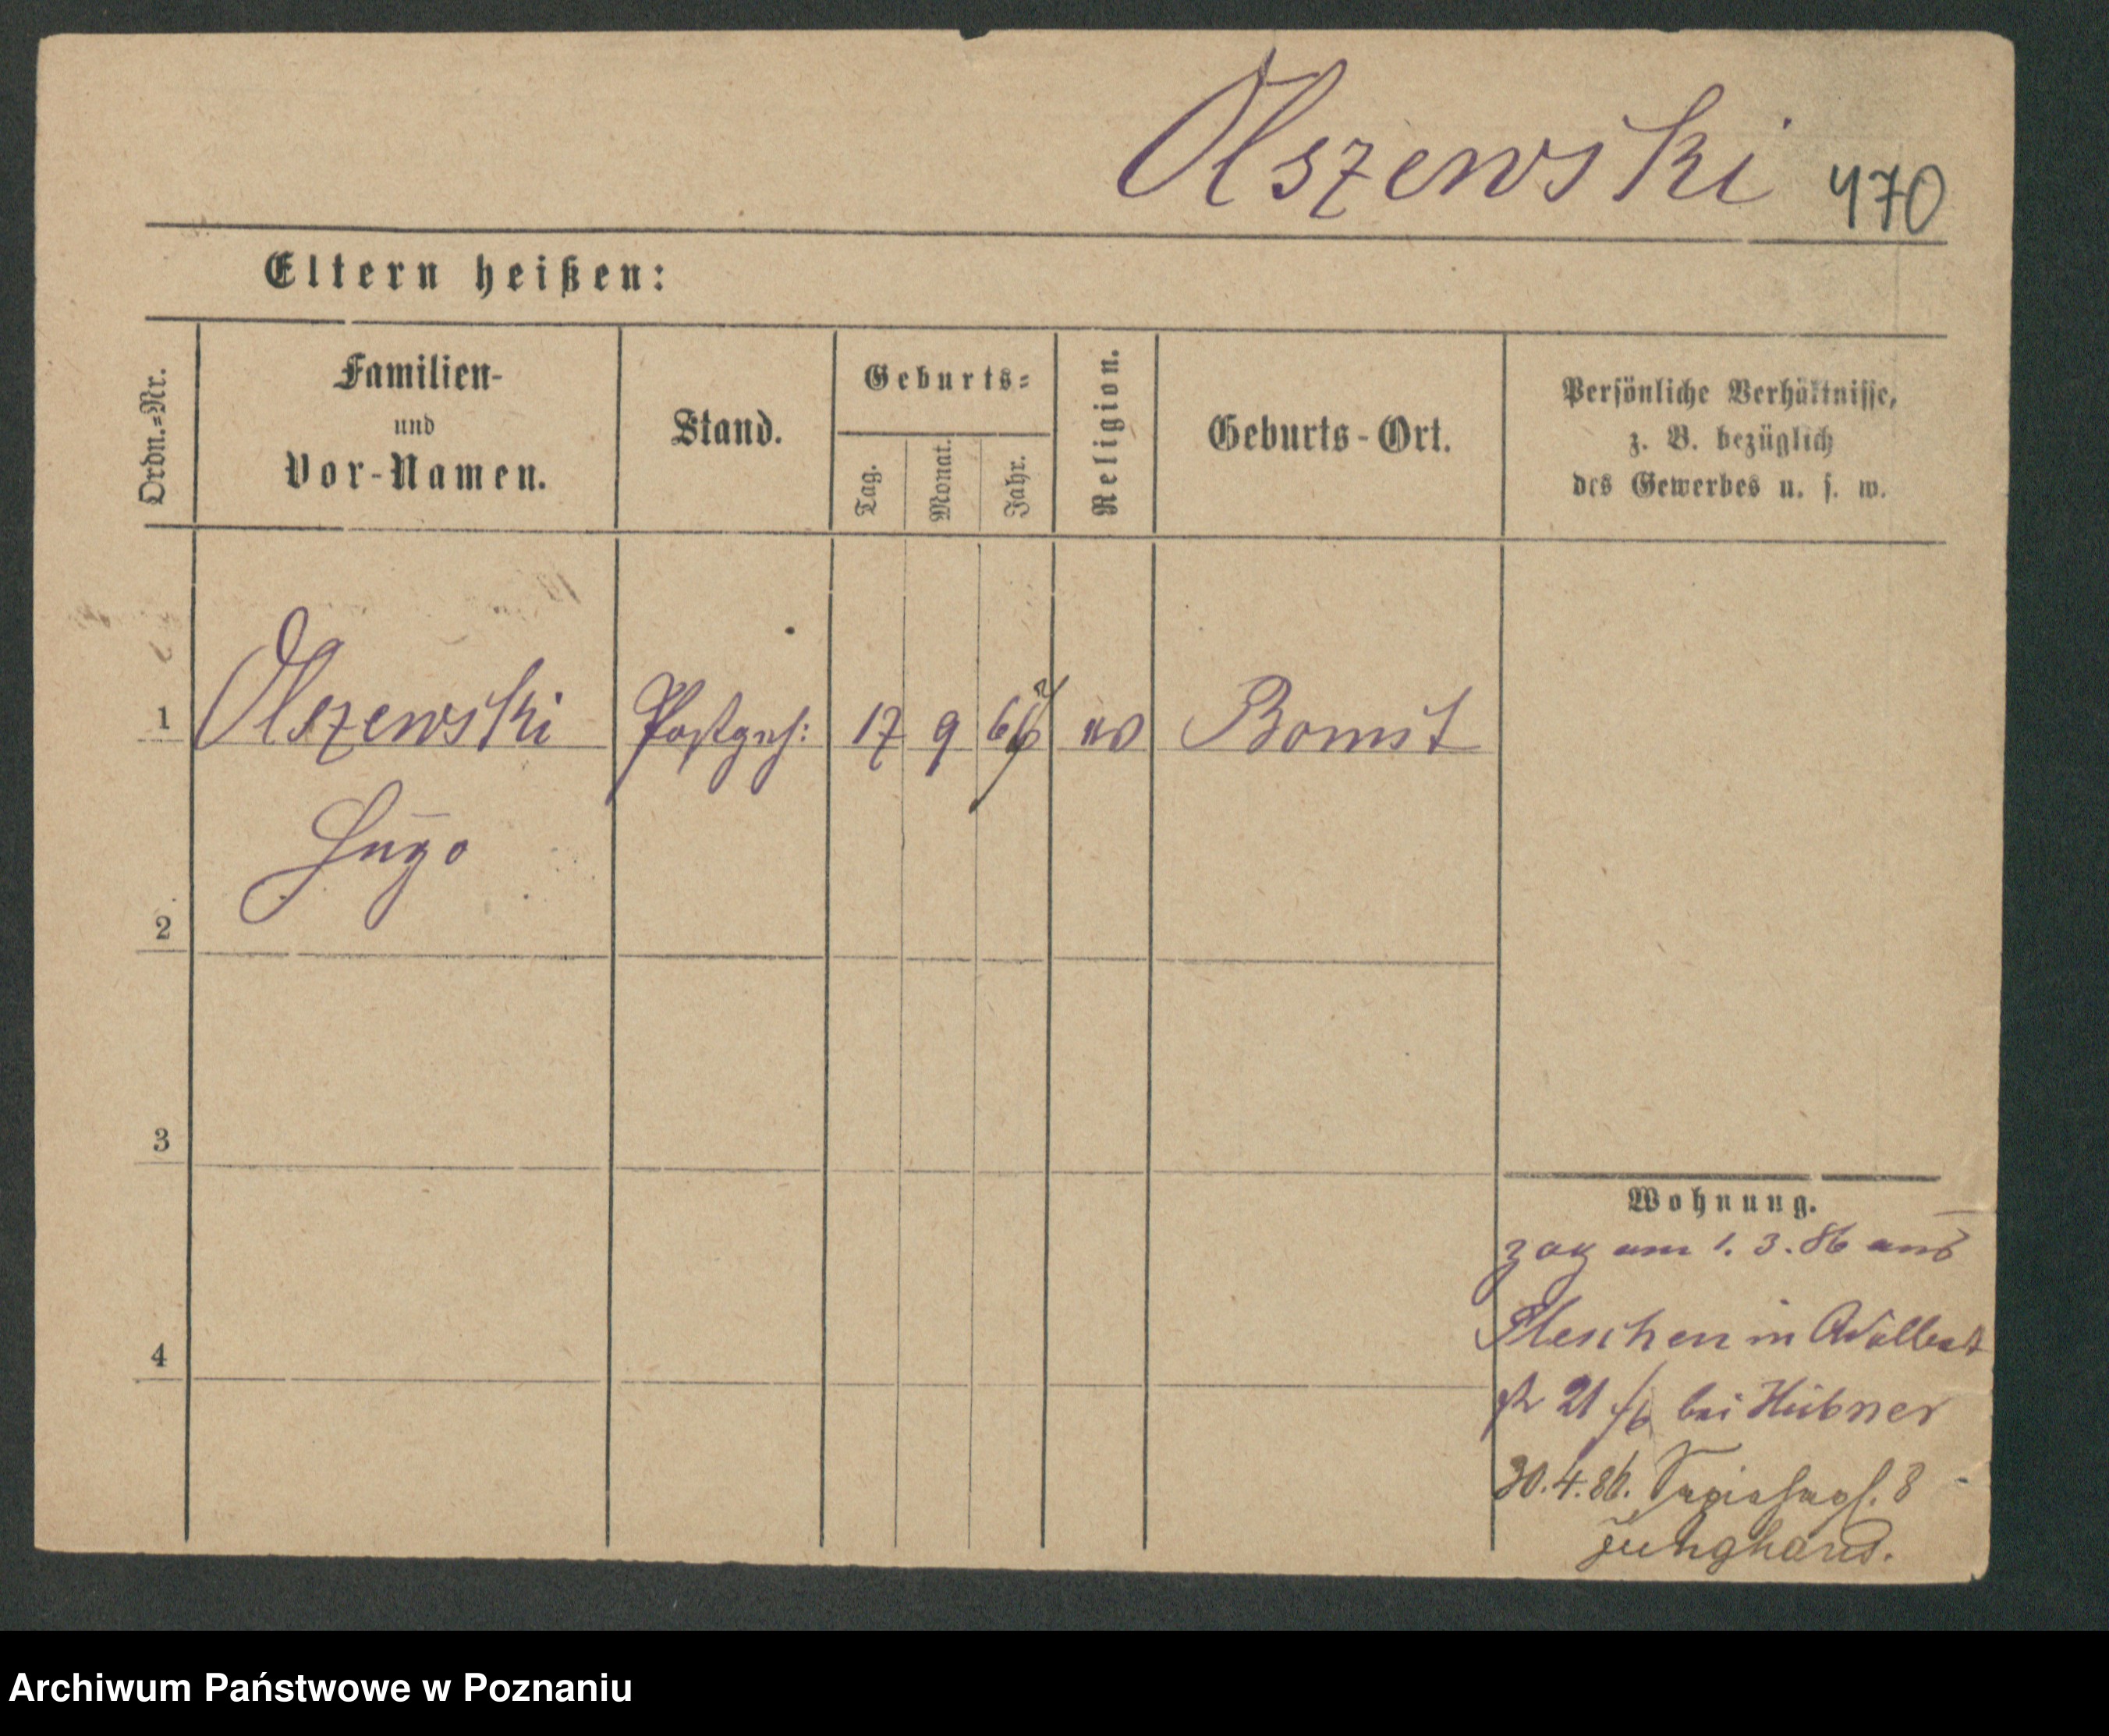 Olszewski 470
Eltern heißen:
Ordn.=Nr.
Familien-
und
Vor-Namen.
Stand.
Geburts=
Tag.
Monat.
Jahr.
Religion.
Geburts-Ort.
Persönliche Verhältnisse,
z. B. bezüglich
des Gewerbes u. s. w.
1 Olszewski Postgeh: 17 9 67 ev Bomst
Hugo
2
3
4
Wohnung.
zog am 1. 3. 86 aus
Pleschen in
21 bei Hübner
30.4.86. 8
Junghans.
Archiwum Państwowe w Poznaniu